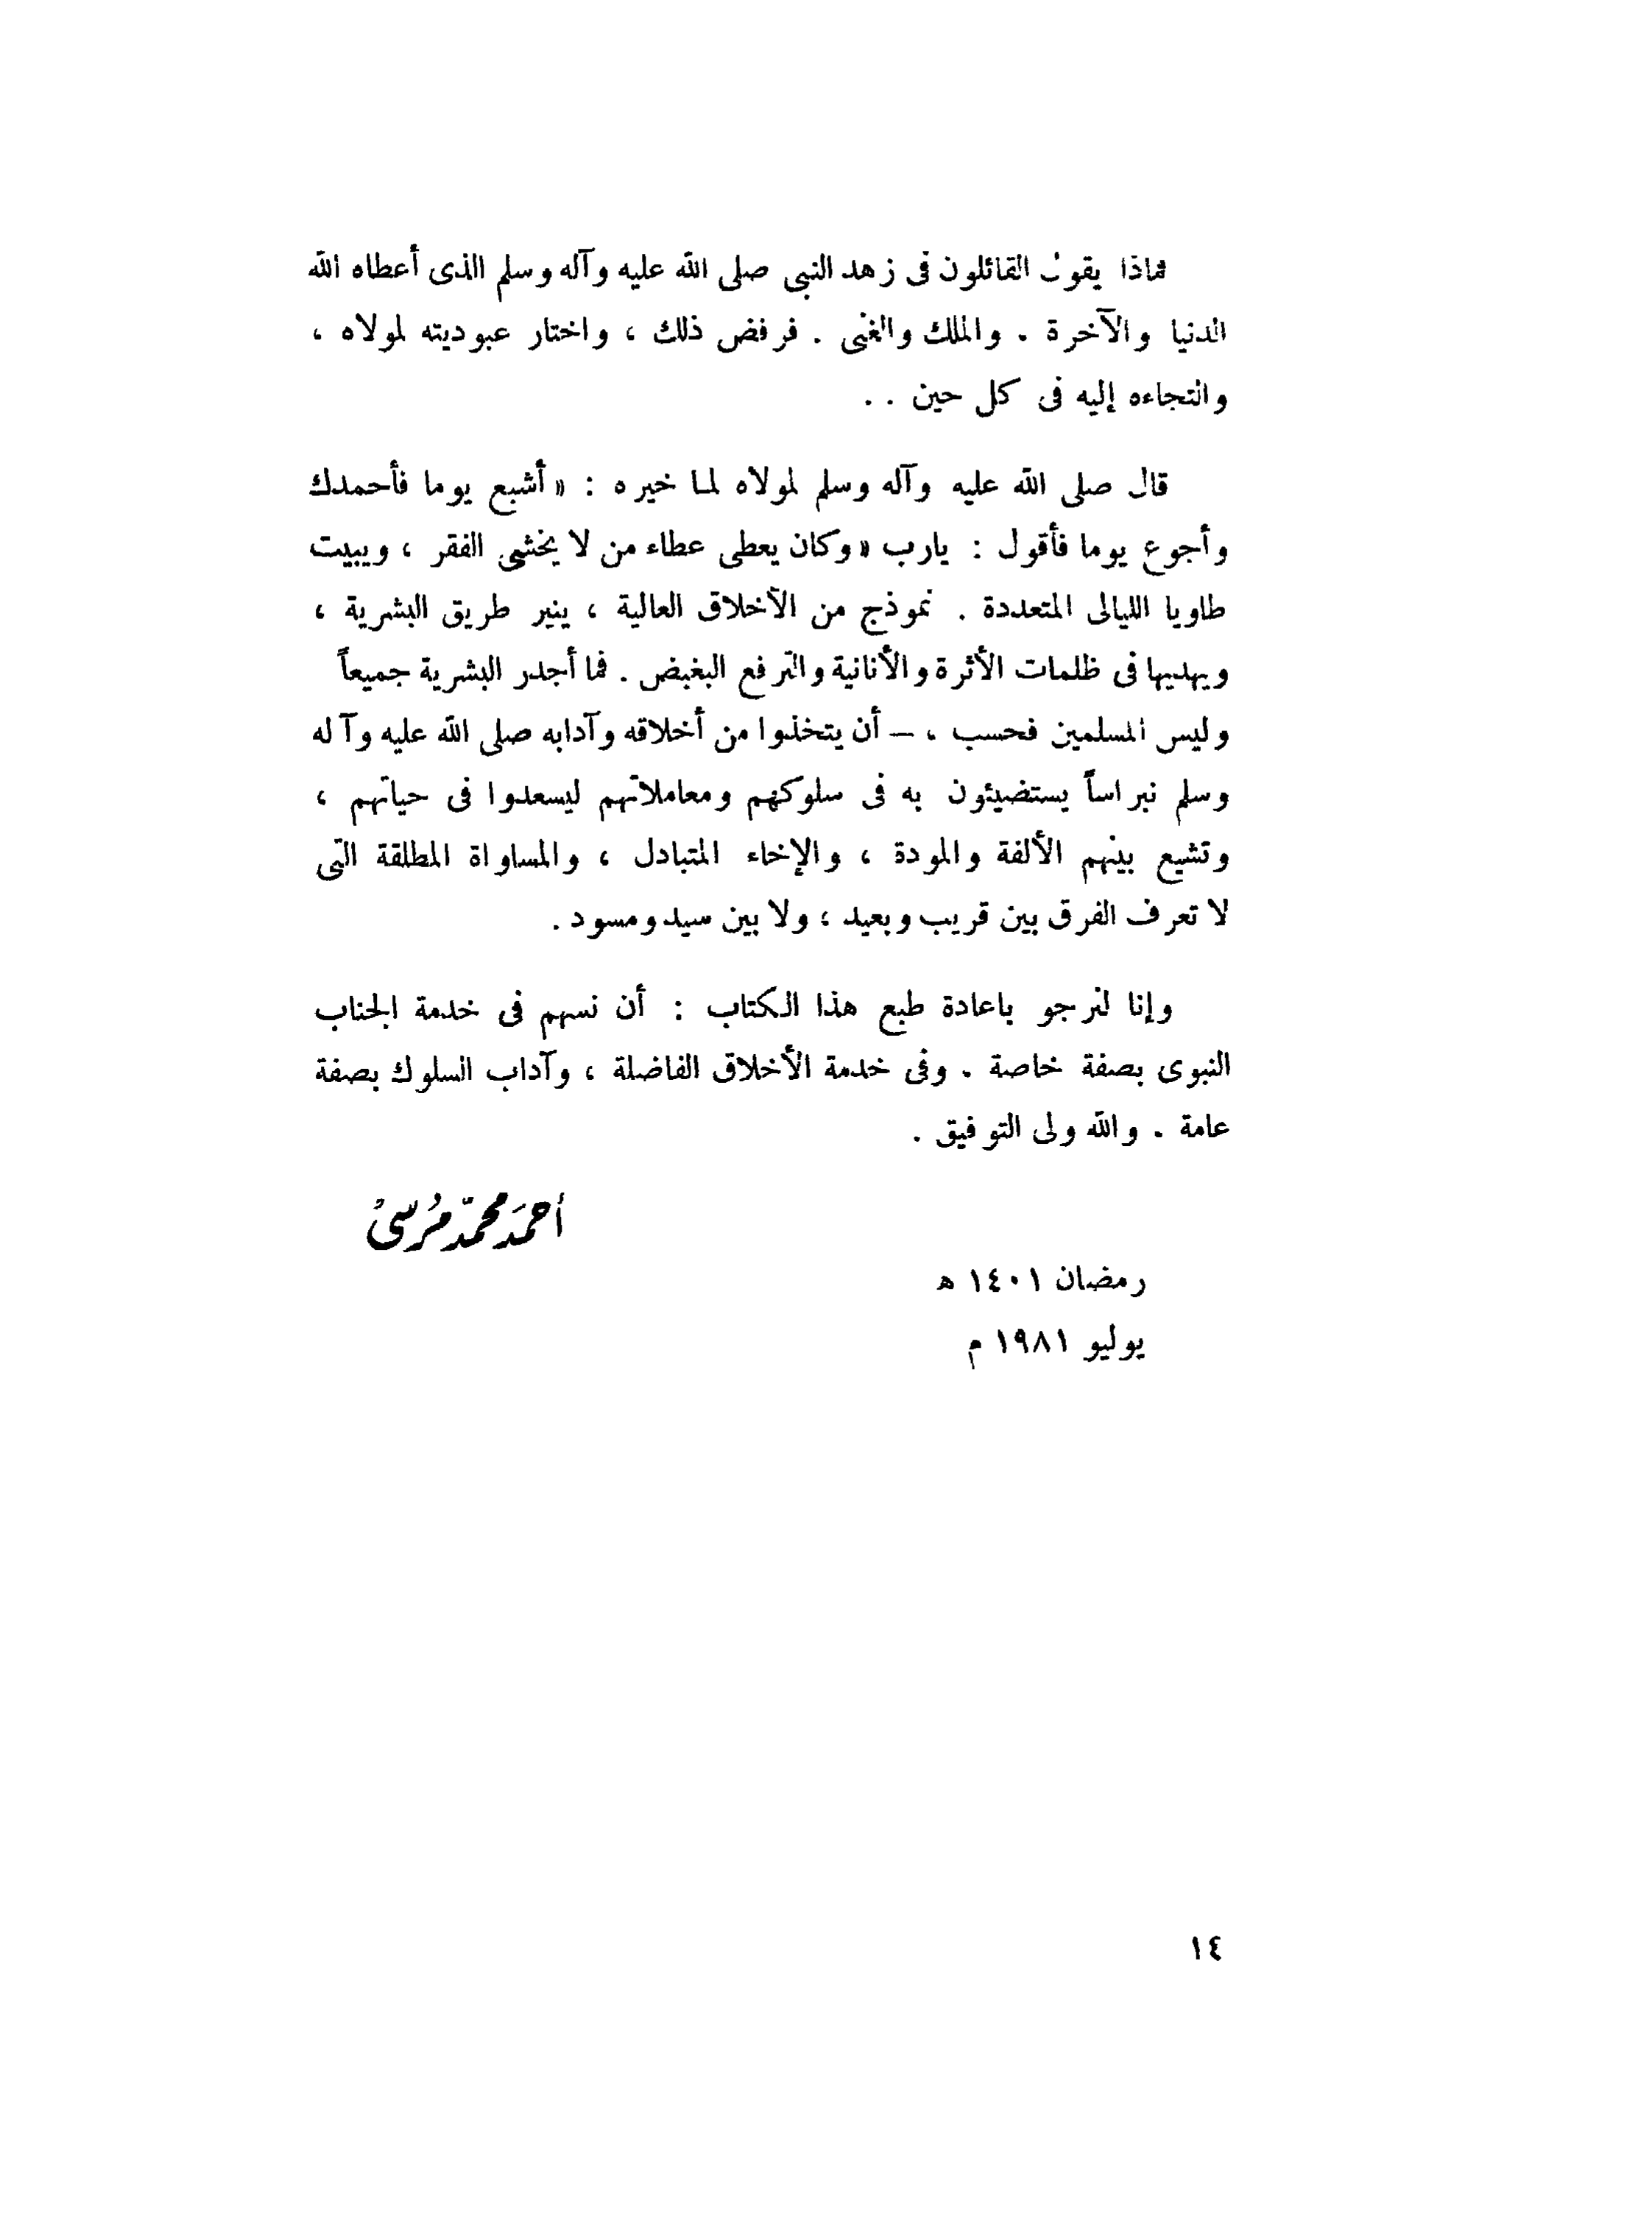 فماذا يقول القائلون فى زهد النبى صلى الله عليه وآله وسلم الذى أعطاه الله
الدنيا والآخرة . والملك والغنى . فرفض ذلك ، واختار عبوديته لمولاه ،
والتجاءه إليه فى كل حين . .
قال صلى الله عليه وآله وسلم لمولاه لما خيره : « أشبع يوما فأحمدك
وأجوع يوما فأقول : يارب » وكان يعطى عطاء من لا يخشى الفقر ، ويبيت
طاويا الليالى المتعددة . نموذج من الأخلاق العالية ، ينير طريق البشرية ،
ويهديها فى ظلمات الأثرة والأنانية والترفع البغيض . فما أجدر البشرية جميعاً
وليس المسلمين فحسب ، – أن يتخذوا من أخلاقه وآدابه صلى الله عليه وآله
وسلم نبراساً يستضيئون به فى سلوكهم ومعاملاتهم ليسعدوا فى حياتهم ،
وتشيع بينهم الألفة والمودة ، والإخاء المتبادل ، والمساواة المطلقة التى
لا تعرف الفرق بين قريب وبعيد ، ولا بين سيد ومسود .
وإنا لنرجو باعادة طبع هذا الكتاب : أن نسهم فى خدمة الجناب
النبوى بصفة خاصة . وفى خدمة الأخلاق الفاضلة ، وآداب السلوك بصفة
عامة . والله ولى التوفيق .
أحمَد محمّد مُرسىْ
رمضان ١٤٠١ ه
يوليو ١٩٨١ م
١٤